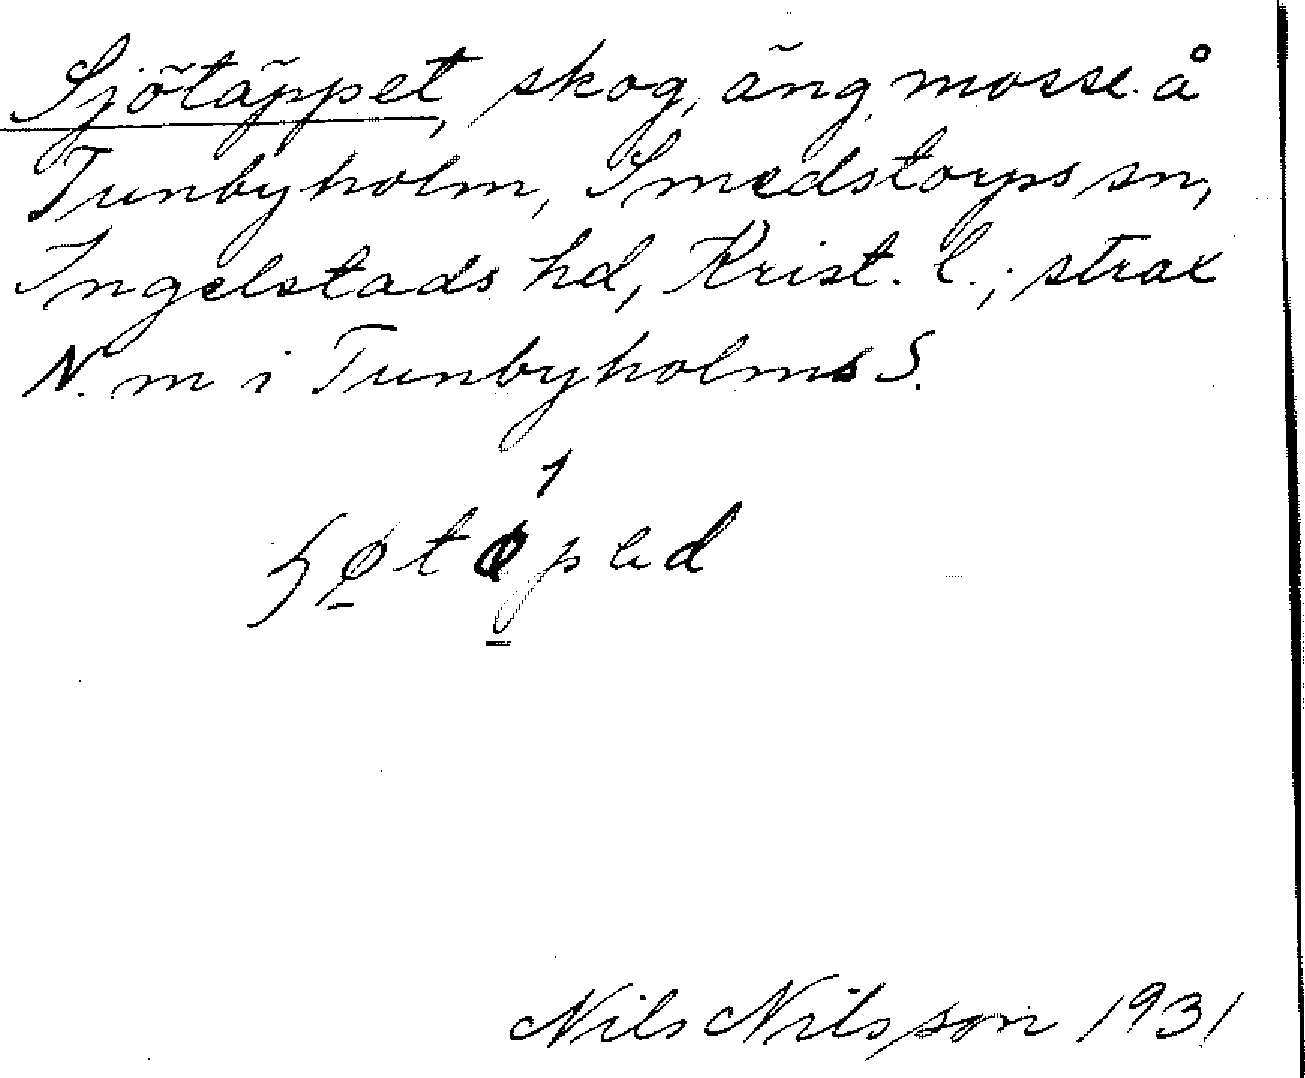 Sjötäppet, skog, äng, mosse å
Tunbyholm, Smedstorps sn,
Ingelstads hd, Krist. l.; strax
N. m i Tunbyholms S.
Nils Nilsson 1931